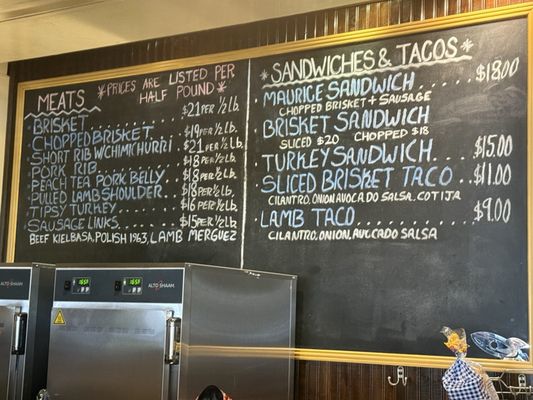 MEATS
*PRICES ARE LISTED PER HALF POUND*
BRISKET $21 PER 1/2 lb.
CHOPPED BRISKET $19 PER 1/2 lb.
SHORT RIB W/CHIMICHURRI $21 PER 1/2 lb.
PORK RIB $18 PER 1/2 lb.
PEACH TEA PORK BELLY $18 PER 1/2 lb.
PULLED LAMB SHOULDER $18 PER 1/2 lb.
TIPSY TURKEY $16 PER 1/2 lb.
SAUSAGE LINKS $15 PER 1/2 lb.
BEEF KIELBASA, POLISH 1963, LAMB MERGUEZ
*SANDWICHES & TACOS*
MAURICE SANDWICH $18.00
CHOPPED BRISKET + SAUSAGE
BRISKET SANDWICH
SLICED $20 CHOPPED $18
TURKEY SANDWICH $15.00
SLICED BRISKET TACO $11.00
CILANTRO, ONION, AVOCADO SALSA, COTIJA
LAMB TACO $9.00
CILANTRO, ONION, AVOCADO SALSA
ALTO-SHAAM
ALTO-SHAAM